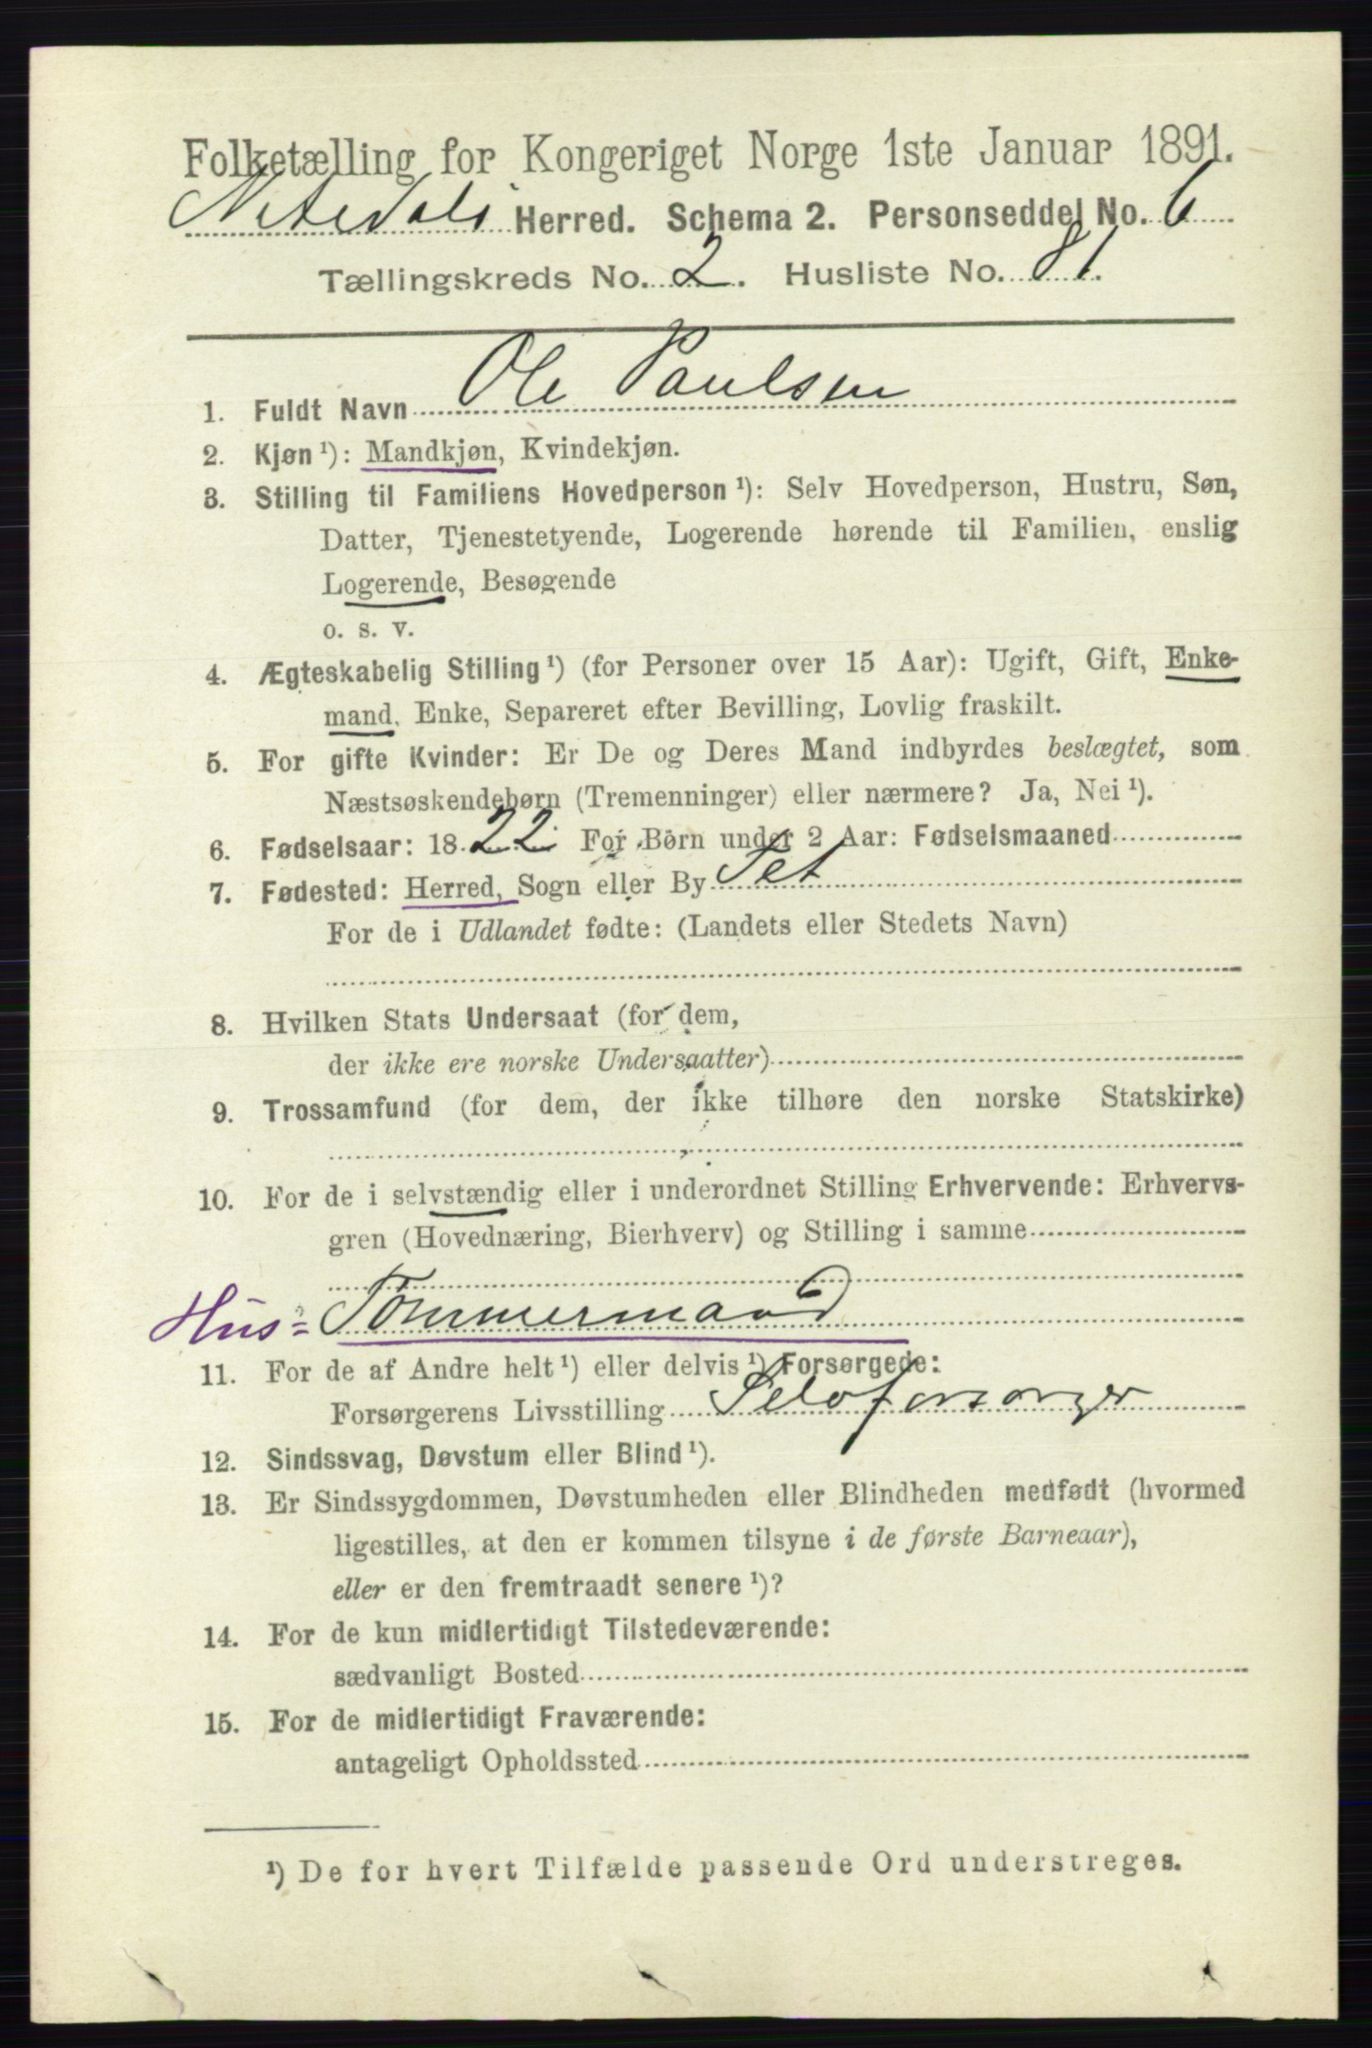 Folketælling for Kongeriget Norge 1ste Januar 1891.
Nitedals Herred. Schema 2. Personseddel No. 6
Tællingskreds No. 2. Husliste No. 81.
1. Fuldt Navn Ole Paulsen
2. Kjøn ¹): Mandkjøn, Kvindekjøn.
3. Stilling til Familiens Hovedperson ¹): Selv Hovedperson, Hustru, Søn,
Datter, Tjenestetyende, Logerende hørende til Familien, enslig
Logerende, Besøgende
o. s. v.
4. Ægteskabelig Stilling ¹) (for Personer over 15 Aar): Ugift, Gift, Enke-
mand, Enke, Separeret efter Bevilling, Lovlig fraskilt.
5. For gifte Kvinder: Er De og Deres Mand indbyrdes beslægtet, som
Næstsøskendebørn (Tremenninger) eller nærmere? Ja, Nei ¹).
6. Fødselsaar: 1822. For Børn under 2 Aar: Fødselsmaaned
7. Fødested: Herred, Sogn eller By Fet
For de i Udlandet fødte: (Landets eller Stedets Navn)
8. Hvilken Stats Undersaat (for dem,
der ikke ere norske Undersaatter)
9. Trossamfund (for dem, der ikke tilhøre den norske Statskirke)
10. For de i selvstændig eller i underordnet Stilling Erhvervende: Erhvervs-
gren (Hovednæring, Bierhverv) og Stilling i samme
Hus= Tømmermand
11. For de af Andre helt ¹) eller delvis ¹) Forsørgede:
Forsørgerens Livsstilling Selvforsørger
12. Sindssvag, Døvstum eller Blind ¹).
13. Er Sindssygdommen, Døvstumheden eller Blindheden medfødt (hvormed
ligestilles, at den er kommen tilsyne i de første Barneaar),
eller er den fremtraadt senere ¹)?
14. For de kun midlertidigt Tilstedeværende:
sædvanligt Bosted
15. For de midlertidigt Fraværende:
antageligt Opholdssted
¹) De for hvert Tilfælde passende Ord understreges.